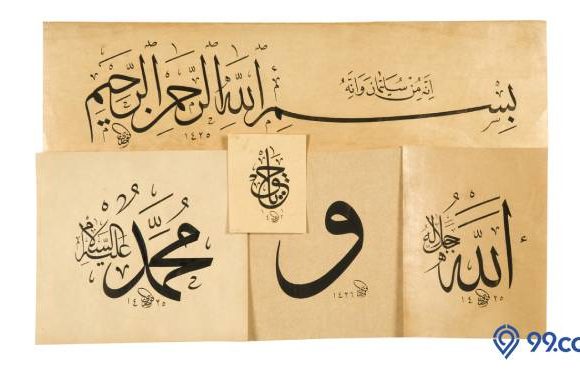 إنه من سليمان وإنه
بسم الله الرحمن الرحيم
١٤٢٥
محمد عليه السلام
١٤٢٥
و
١٤٢٦
الله جل جلاله
١٤٢٥
99.co